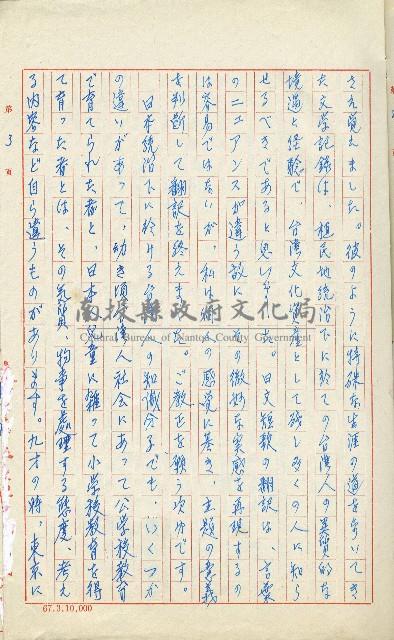 さえ覚えました。彼のように特殊な生涯の道を歩いてき
た文学記録は、植民地統治下に於ての台湾人の異質的な
境遇と経験で、台湾文化資産として残し多くの人に知ら
せるべきであると思います。日文短歌の翻訳は、言葉
のニュアンスが違う故に、その微妙な実感を再現するの
は容易ではないが、私は個人の感覚に基き、主題の意義
を判断して翻訳を終えました。ご教正を願う次第です。
日本統治下に於ける台湾人の知識分子でも、いくつか
の違いがあって、幼き頃台湾人社会にあって公学校教育
で育てられた者と、日本児童に雑って小学校教育を得
て育った者とは、その気質、物事を処理する態度、考え
る内容など自ら違うものがあります。九才の時、東京に
第 3 頁
南投縣政府文化局
Cultural Bureau of Nantou County Government
67.3.10,000